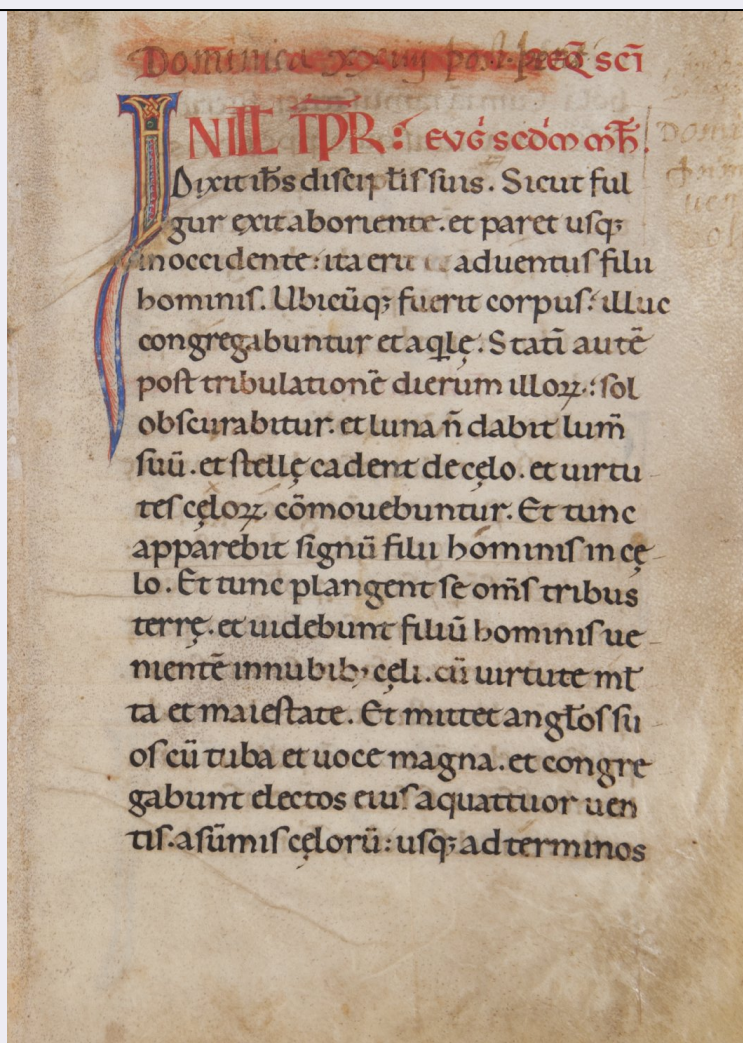 Dominica xxiiij post pent SEQ̃ sc̄i
IN ILL̄ TP̄R : evḡ scd̄m mh̄.
Dixit ih̄s discip̄lis suis. Sicut ful
gur exit ab oriente. et paret usq;
in occidente: ita erit aduentus filii
hominis. Ubicūq; fuerit corpus: illuc
congregabuntur et aq̄lę. Stati᷈ autē
post tribulationē dierum illoꝝ: sol
obscurabitur. et luna n̄ dabit lum̄
suū. et stellę cadent de cęlo. et uirtu
tes cęloꝝ cōmouebuntur. Et tunc
apparebit signū filii hominis in cę
lo. Et tunc plangent se om̄s tribus
terrę. et uidebunt filiū hominis ue
nientē in nubib; cęli. cū uirtute ml̄
ta et maiestate. Et mittet angl̄os su
os cū tuba et uoce magna. et congre
gabunt electos eius a quattuor uen
tis. a sūmis cęlorū: usq; ad terminos